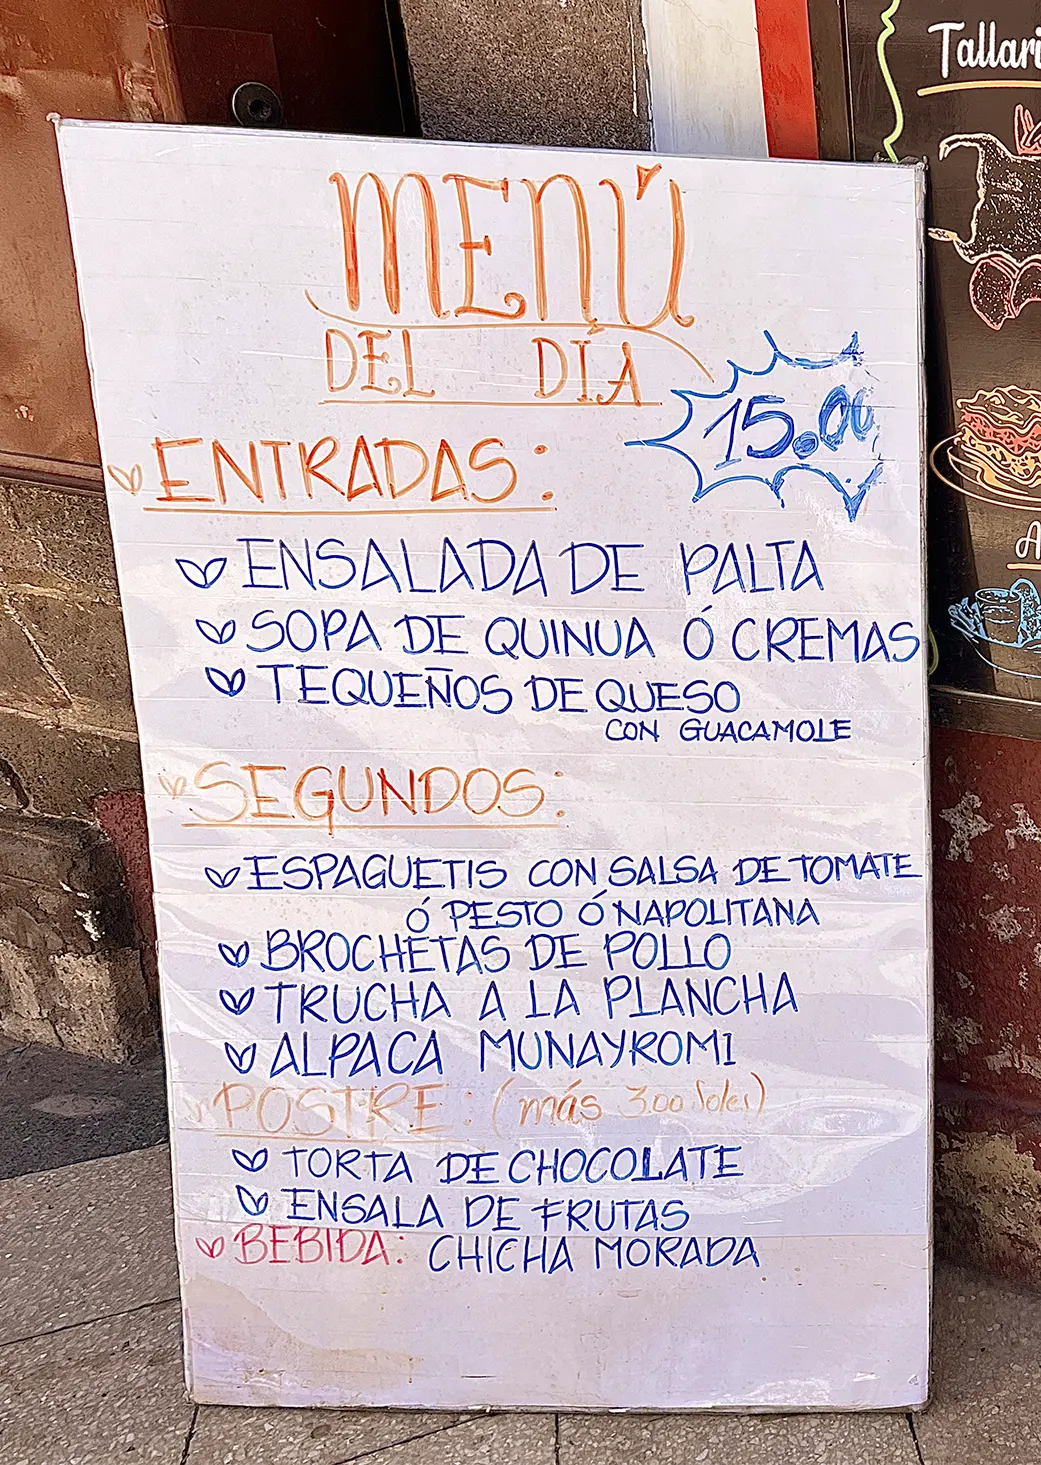 MENÚ
DEL DÍA
15.00
ENTRADAS:
ENSALADA DE PALTA
SOPA DE QUINUA Ó CREMAS
TEQUEÑOS DE QUESO
CON GUACAMOLE
SEGUNDOS:
ESPAGUETIS CON SALSA DE TOMATE
Ó PESTO Ó NAPOLITANA
BROCHETAS DE POLLO
TRUCHA A LA PLANCHA
ALPACA MUNAYROMI
POSTRE: (más 3.00 Soles)
TORTA DE CHOCOLATE
ENSALA DE FRUTAS
BEBIDA: CHICHA MORADA
Tallari
A